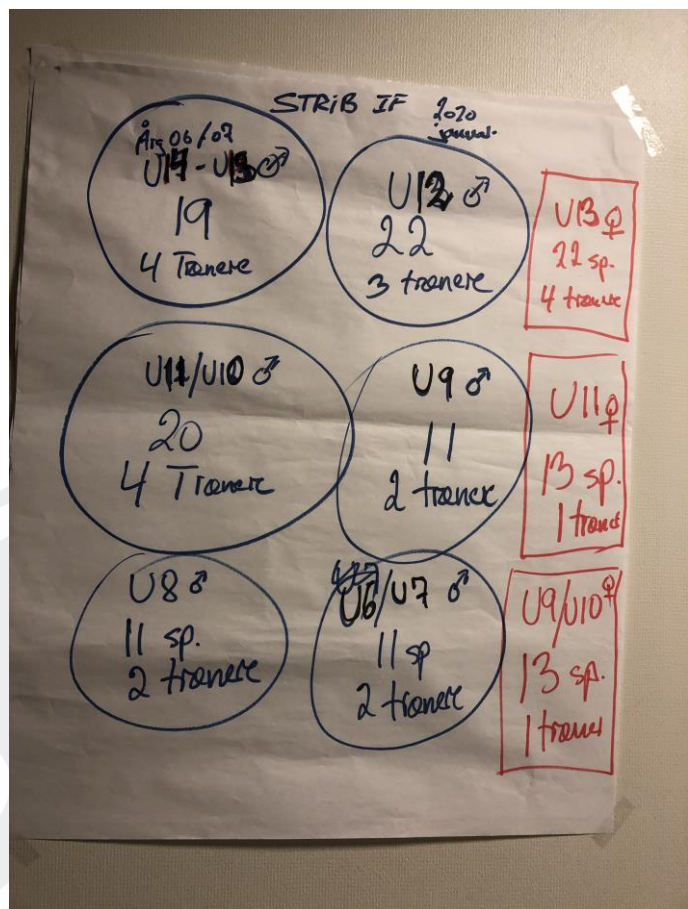 STRIB IF 2020
januar.
Årg 06/07
U14-U13 ♂
19
4 Trænere
U12 ♂
22
3 trænere
U13 ♀
22 sp.
4 trænere
U11/U10 ♂
20
4 Trænere
U9 ♂
11
2 trænere
U11 ♀
13 sp.
1 træner
U8 ♂
11 sp.
2 trænere
U6/U7 ♂
11 sp
2 trænere
U9/U10 ♀
13 sp.
1 træner